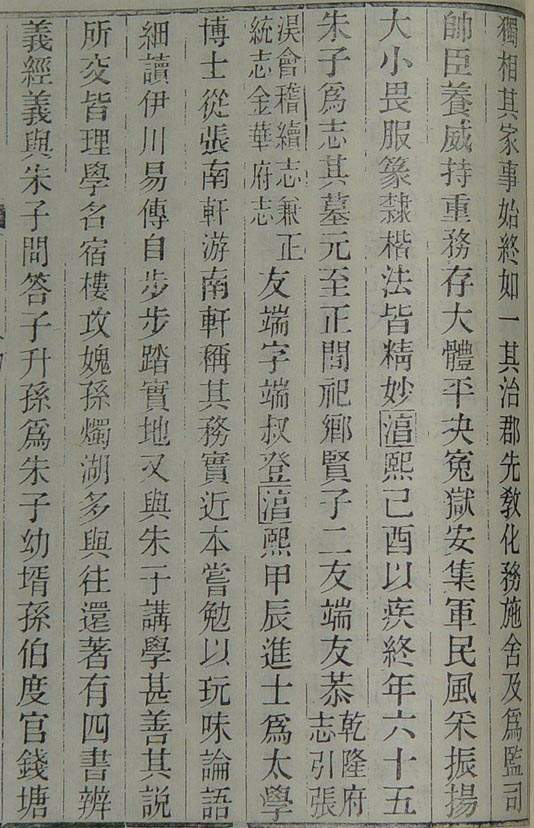 獨相其家事始終如一其治郡先敎化務施舍及爲監司
帥臣養威持重務存大體平决寃獄安集軍民風采振揚
大小畏服篆隸楷法皆精妙湻熙己酉以疾終年六十五
朱子爲志其墓元至正間祀鄉賢子二友端友恭乾隆府志引張
淏會稽續志兼正統志金華府志友端字端叔登湻熙甲辰進士爲太學
博士從張南軒游南軒稱其務實近本嘗勉以玩味論語
細讀伊川易傳自步步踏實地又與朱子講學甚善其說
所交皆理學名宿樓攻媿孫燭湖多與往還著有四書辨
義經義與朱子問答子升孫爲朱子幼壻孫伯度官錢塘